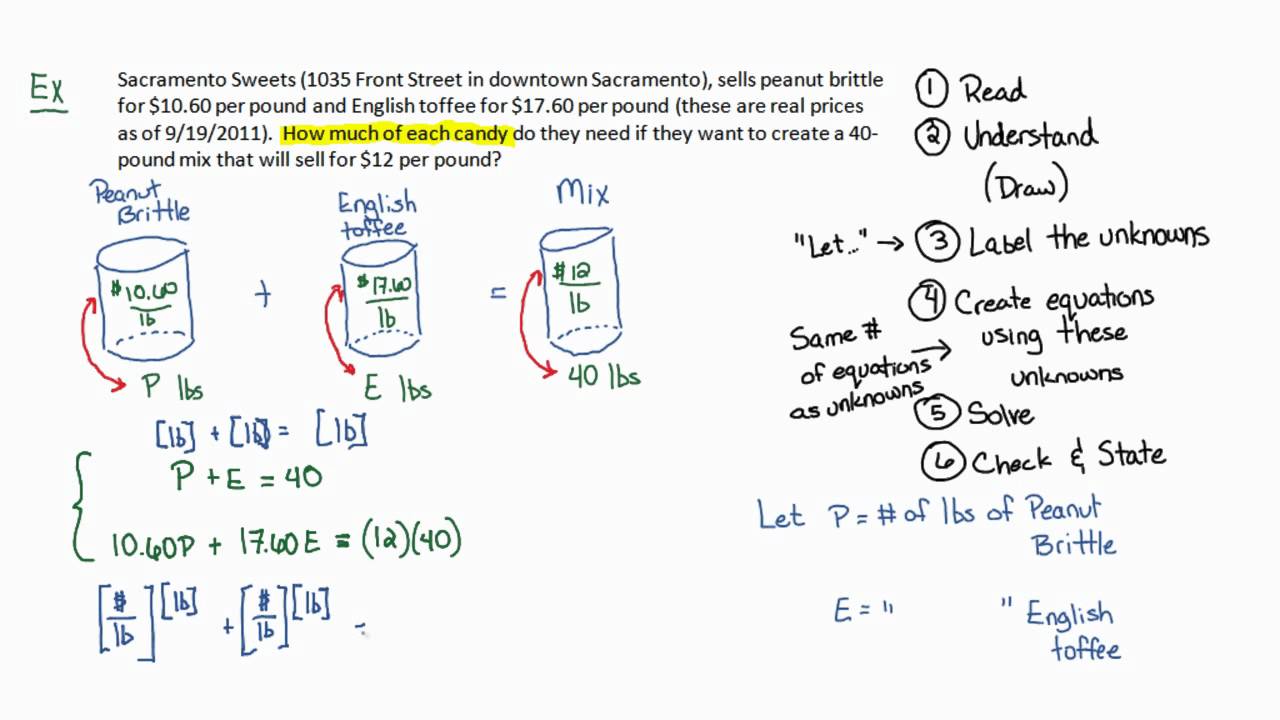 Ex
Sacramento Sweets (1035 Front Street in downtown Sacramento), sells peanut brittle
for $10.60 per pound and English toffee for $17.60 per pound (these are real prices
as of 9/19/2011). How much of each candy do they need if they want to create a 40-
pound mix that will sell for $12 per pound?
Peanut
Brittle
English
toffee
Mix
$10.60
lb
+
$17.60
lb
=
$12
lb
P lbs
E lbs
40 lbs
[lb] + [lb] = [lb]
P + E = 40
10.60P + 17.60E = (12)(40)
[$/lb][lb] + [$/lb][lb] -
① Read
② Understand
(Draw)
"Let..." → ③ Label the unknowns
④ Create equations
using these
unknowns
Same #
of equations →
as unknowns
⑤ Solve
⑥ Check & State
Let P = # of lbs of Peanut
Brittle
E = " " English
toffee